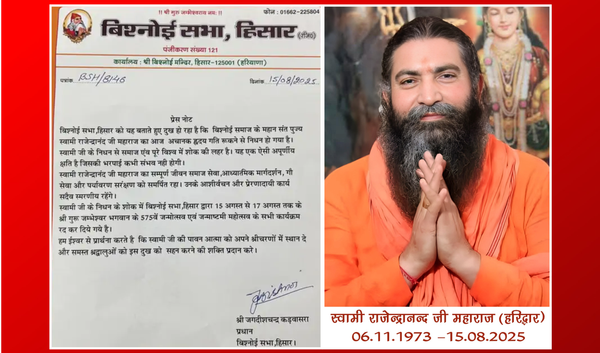 ॥ श्री गुरु जम्भेश्वराय नमः ॥
फोन : 01662-225804
बिश्नोई सभा, हिसार (रजि०)
पंजीकरण संख्या 121
कार्यालय : श्री बिश्नोई मन्दिर, हिसार-125001 (हरियाणा)
क्रमांक BSH/8146
दिनांक 15/08/2025
प्रेस नोट
बिश्नोई सभा,हिसार को यह बताते हुए दुख हो रहा है कि बिश्नोई समाज के महान संत पुज्य
स्वामी राजेन्द्रानंद जी महाराज का आज अचानक ह्रदय गति रूकने से निधन हो गया है।
स्वामी जी के निधन से समाज एंव पुरे विश्व में शोक की लहर है। यह एक ऐसी अपूर्णीय
क्षति है जिसकी भरपाई कभी संभव नही होगी।
स्वामी राजेन्द्रानंद जी महाराज का सम्पूर्ण जीवन समाज सेवा,आध्यात्मिक मार्गदर्शन, गौ
सेवा और पर्यावरण सरंक्षण को समर्पित रहा। उनके आशीर्वचन और प्रेरणादायी कार्य
सदैव स्मरणीय रहेंगे।
स्वामी जी के निधन के शोक में बिश्नोई सभा,हिसार द्वारा 15 अगस्त से 17 अगस्त तक के
श्री गुरु जम्भेश्वर भगवान के 575वें जन्मोत्सव एवं जन्माष्टमी महोत्सव के सभी कार्यक्रम
रद कर दिये गये है।
हम ईश्वर से प्रार्थना करते है कि स्वामी जी की पावन आत्मा को अपने श्रीचरणों में स्थान दे
और समस्त श्रद्धालुओं को इस दुख को सहन करने की शक्ति प्रदान करे।
श्री जगदीशचन्द्र कड़वासरा
प्रधान
बिश्नोई सभा, हिसार।
स्वामी राजेन्द्रानन्द जी महाराज (हरिद्वार)
06.11.1973 –15.08.2025